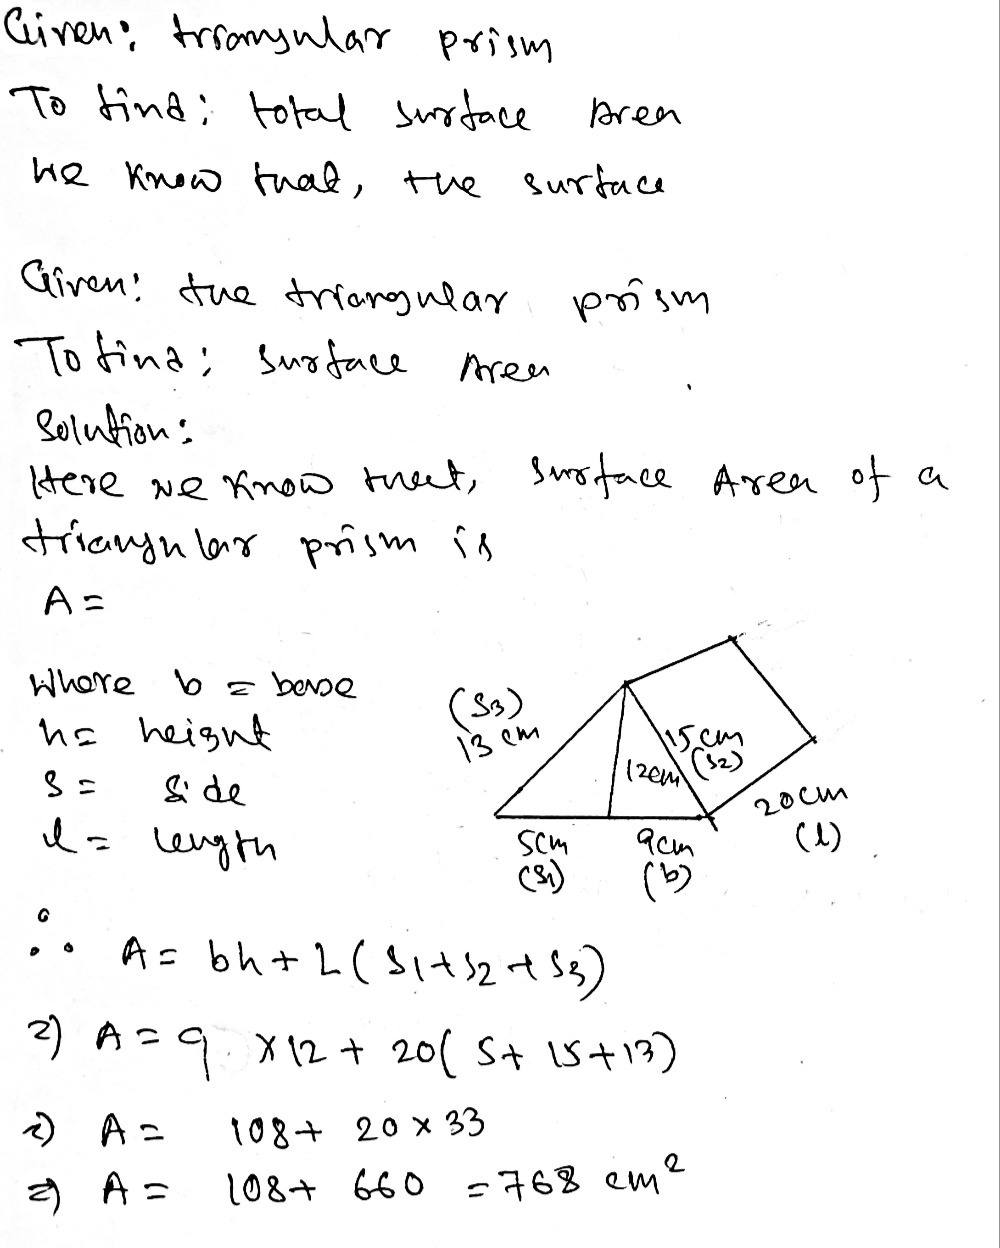 Given: triangular prism
To find: total surface Area
We know that, the surface
Given: the triangular prism
To find: Surface Area
Solution:
Here we know that, Surface Area of a
triangular prism is
A =
Where b = base
h = height
s = side
l = length
(S3)
13 cm
15 cm
(S2)
12cm
20cm
(l)
5cm
(S1)
9cm
(b)
∴ A = bh + L ( S1 + S2 + S3 )
⇒ A = 9 × 12 + 20( 5 + 15 + 13 )
⇒ A = 108 + 20 × 33
⇒ A = 108 + 660 = 768 cm²